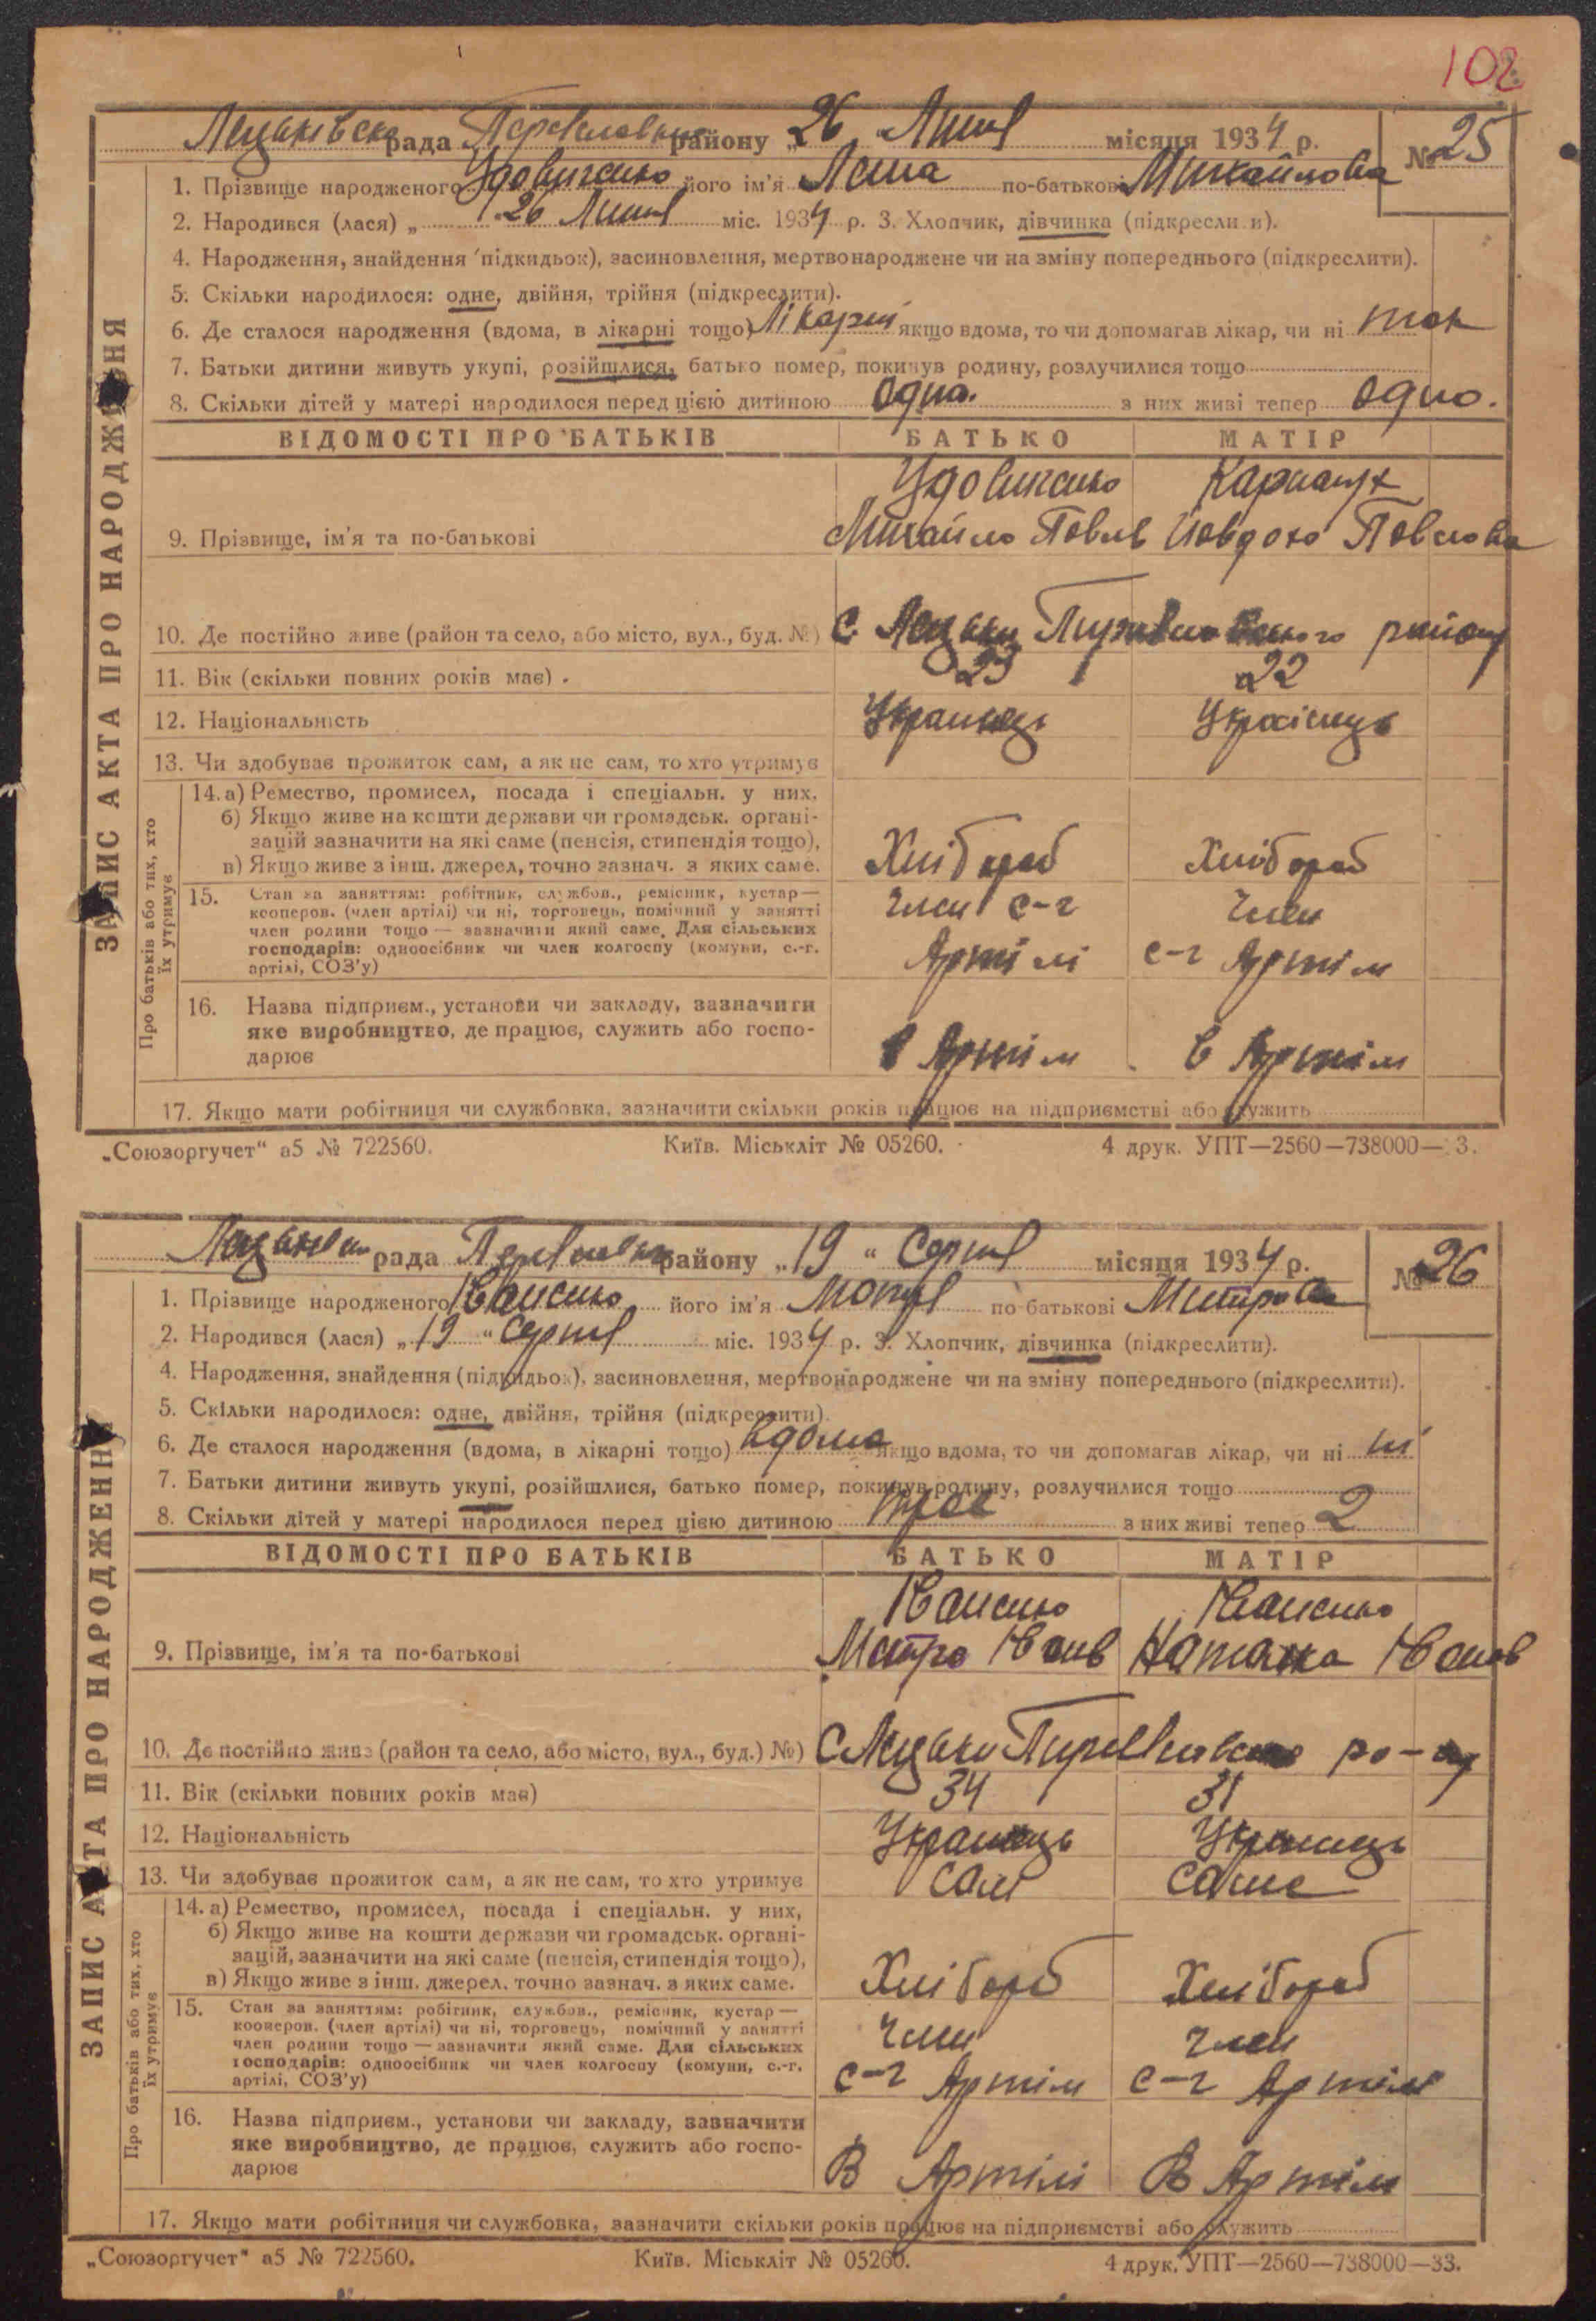 102
Лецьківська рада Переяславськ району „ 26 Липня місяця 1934 р. № 25
1. Прізвище народженого Удовиченко його ім'я по-батькові Михайловна
2. Народився (лася) „ 26 Липня міс. 1934 р. 3. Хлопчик, дівчинка (підкреслити).
4. Народження, знайдення (підкидьок), засиновлення, мертвонароджене чи на зміну попереднього (підкреслити).
5. Скільки народилося: одне, двійня, трійня (підкреслити).
6. Де сталося народження (вдома, в лікарні тощо) Лікарні якщо вдома, то чи допомагав лікар, чи ні так
7. Батьки дитини живуть укупі, розійшлися, батько помер, покинув родину, розлучилися тощо
8. Скільки дітей у матері народилося перед цією дитиною одна. з них живі тепер одно.
ВІДОМОСТІ ПРО БАТЬКІВ БАТЬКО МАТІР
Удовиченко Карпанух
9. Прізвище, ім'я та по-батькові Михайло Повлв Йовдоха Повловна
10. Де постійно живе (район та село, або місто, вул., буд. №) С Лецьки району
11. Вік (скільки повних років має) . 23 22
12. Національність Українець Українець
13. Чи здобуває прожиток сам, а як не сам, то хто утримує
ЗАПИС АКТА ПРО НАРОДЖЕННЯ
Про батьків або тих, хто їх утримує
14. а) Ремество, промисел, посада і спеціальн. у них,
б) Якщо живе на кошти держави чи громадськ. органі-
зацій зазначити на які саме (пенсія, стипендія тощо),
в) Якщо живе з інш. джерел, точно зазнач. з яких саме. Хлібороб Хлібороб
15. Стан за заняттям: робітник, службов., ремісник, кустар —
кооперов. (член артілі) чи ні, торговець, помічний у занятті
член родини тощо — зазначити який саме. Для сільських
господарів: одноосібник чи член колгоспу (комуни, с.-г.
артілі, СОЗ'у)
Член с-г Член
Артілі с-г Артіли
16. Назва підприєм., установи чи закладу, зазначити
яке виробництво, де працює, служить або госпо-
дарює в Артіли в Артіли
17. Якщо мати робітниця чи службовка, зазначити скільки років працює на підприємстві або служить
„Союзоргучет“ а5 № 722560. Київ. Міськліт № 05260. 4 друк. УПТ—2560—738000—33.
рада району „ 19 “ Серпня місяця 1934 р. № 26
1. Прізвище народженого Іваненко його ім'я Мотря по батькові Митровна
2. Народився (лася) „ 19 “ Серпня міс. 1934 р. 3. Хлопчик, дівчинка (підкреслити).
4. Народження, знайдення (підкидьок), засиновлення, мертвонароджене чи на зміну попереднього (підкреслити).
5. Скільки народилося: одне, двійня, трійня (підкреслити).
6. Де сталося народження (вдома, в лікарні тощо) вдома якщо вдома, то чи допомагав лікар, чи ні ні
7. Батьки дитини живуть укупі, розійшлися, батько помер, покинув родину, розлучилися тощо
8. Скільки дітей у матері народилося перед цією дитиною троє з них живі тепер 2
ВІДОМОСТІ ПРО БАТЬКІВ БАТЬКО МАТІР
Іваненко Іваненко
9. Прізвище, ім'я та по-батькові Митро Іванв Наталка Іванов
10. Де постійно живе (район та село, або місто, вул., буд.) №) С Лецьки ро-ну
11. Вік (скільки повних років має) 34 31
12. Національність Українець Українець
13. Чи здобуває прожиток сам, а як не сам, то хто утримує сам саме
ЗАПИС АКТА ПРО НАРОДЖЕННЯ
Про батьків або тих, хто їх утримує
14. а) Ремество, промисел, посада і спеціальн. у них,
б) Якщо живе на кошти держави чи громадськ. органі-
зацій, зазначити на які саме (пенсія, стипендія тощо),
в) Якщо живе з інш. джерел. точно зазнач. з яких саме. Хлібороб Хлібороб
15. Стан за заняттям: робітник, службов., ремісник, кустар —
кооперов. (член артілі) чи ні, торговець, помічний у занятті
член родини тощо — зазначити який саме. Для сільських
господарів: одноосібник чи член колгоспу (комуни, с.-г.
артілі, СОЗ'у)
Член Член
с-г Артіли с-г Артілі
16. Назва підприєм., установи чи закладу, зазначити
яке виробництво, де працює, служить або госпо-
дарює В Артілі В Артіли
17. Якщо мати робітниця чи службовка, зазначити скільки років працює на підприємстві або служить
„Союзоргучет“ а5 № 722560. Київ. Міськліт № 05260. 4 друк. УПТ—2560—738000—33.